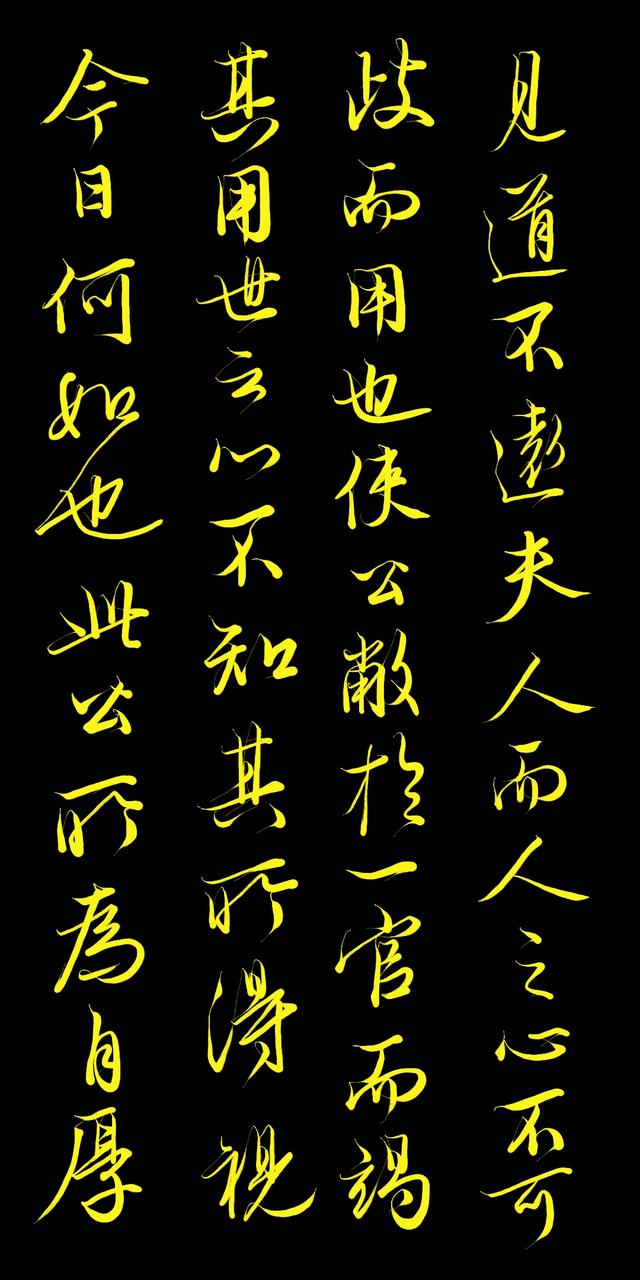 見道不夫人而人之心不可
歧而用也使公敝於一官而竭
其用世之心不知其所得視
今日何如也此公所為自厚